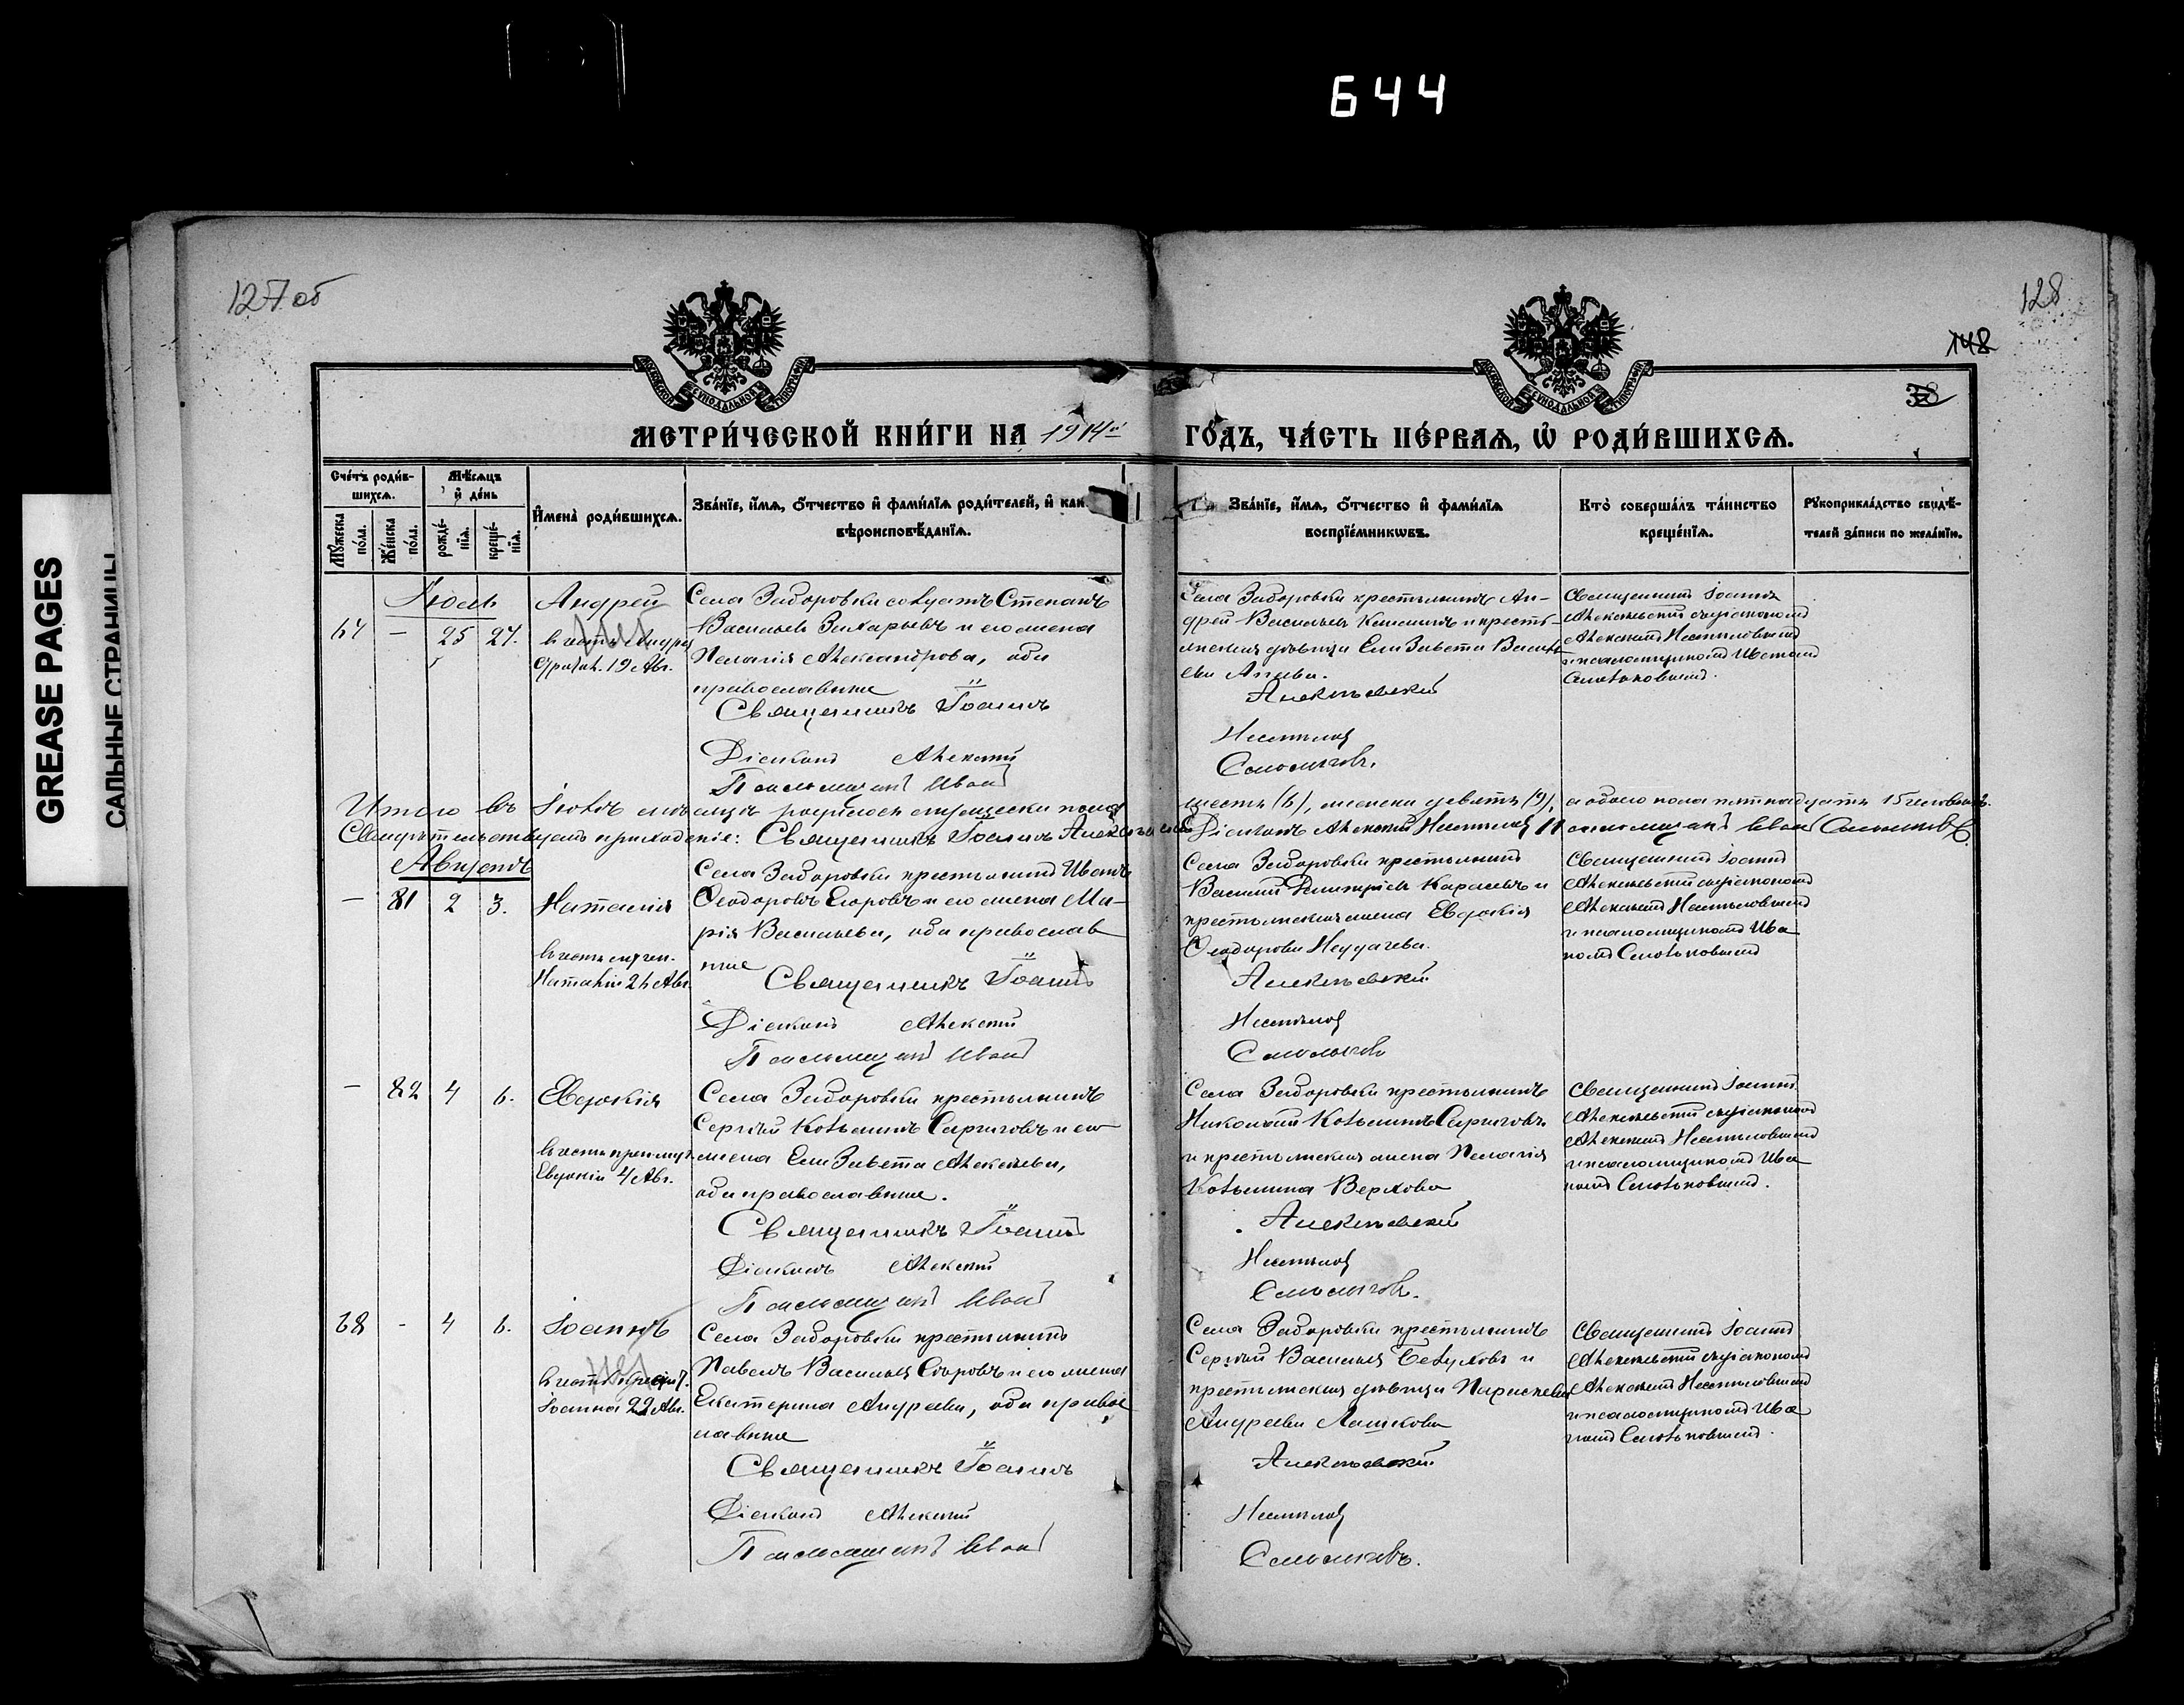 644
GREASE PAGES
САЛЬНЫЕ СТРАНИЦЫ
127 об
128
148
МЕТРИ́ЧЕСКОЙ КНИ́ГИ НА 1914й ГО́ДЪ, ЧА́СТЬ ПЕ́РВАѦ, Ѡ҆ РОДИ́ВШИХСѦ.
Сче́тъ роди́в-
шихсѧ.
Мѣ́сѧцъ
и҆ де́нь
Мꙋ́жеска по́ла.
Же́нска по́ла.
рожде́-
нїѧ.
креще́-
нїѧ.
И҆мена̀ роди́вшихсѧ.
Зва́нїе, и҆́мѧ, ѻ҆́тчество и҆ фами́лїѧ роди́телей, и҆ как
вѣроисповѣ́данїѧ.
Зва́нїе, и҆́мѧ, ѻ҆́тчество и҆ фами́лїѧ
воспрїе́мникѡвъ.
Кто̀ соверша́лъ та́инство
креще́нїѧ.
Рꙋкоприкла́дство свидѣ́-
телей за́писи по жела́нїю.
Июль
67 - 25 27.
Андрей
19 Авг.
Села Заборовки солдатъ Степанъ
Васильевъ Захарьевъ и его жена
Пелагія Александрова, оба
православные
Священникъ Іоаннъ
Діаконъ Алексій
Псаломщикъ Иванъ
Села Заборовки крестьянинъ Ан-
дрей Васильевъ и кресть-
янская дѣвица Елизавета Василь
ева
Алексѣевскій
Смольковъ.
Священникъ Іоаннъ
Алексѣевскій съ діакономъ
Алексіемъ
и псаломщикомъ Иваномъ
Смольковымъ.
Итого въ Іюлѣ мѣсяцѣ родилось мужеска пола
шесть (6), женска девять (9), а обоего пола пятнадцать 15 человѣкъ.
Священникъ Іоаннъ Алексѣевскій
Діаконъ Алексій Псаломщикъ Иванъ Смольковъ
Августъ
— 81 2 3.
Наталія
въ честь мучен.
Наталіи 26 Авг.
Села Заборовки крестьянинъ Иванъ
Ѳеодоровъ Егоровъ и его жена Ма-
рія Васильева, оба православ
ные
Священникъ Іоаннъ
Діаконъ Алексій
Псаломщикъ Иванъ
Села Заборовки крестьянинъ
Василій Димитріевъ Карасевъ и
крестьянская жена Евдокія
Ѳеодорова Неудачева.
Алексѣевскій
Смольковъ
Священникъ Іоаннъ
Алексѣевскій съ діакономъ
Алексіемъ
и псаломщикомъ Ива
номъ Смольковымъ
— 82 4 6.
Евдокія
въ честь препмуч.
Евдокіи 4 Авг.
Села Заборовки крестьянинъ
Сергій Козьминъ и его
жена Елизавета Алексѣева,
оба православные.
Священникъ Іоаннъ
Діаконъ Алексій
Псаломщикъ Иванъ
Села Заборовки крестьянинъ
Николай Козьминъ
и крестьянская жена Пелагія
Козьмина Верхова
Алексѣевскій
Смольковъ.
Священникъ Іоаннъ
Алексѣевскій съ діакономъ
Алексіемъ
и псаломщикомъ Ива
номъ Смольковымъ.
68 - 4 6.
Іоаннъ
Іоанна 29 Авг.
Села Заборовки крестьянинъ
Павелъ Васильевъ и его жена
Екатерина Андреева, оба право
славные
Священникъ Іоаннъ
Діаконъ Алексій
Псаломщикъ Иванъ
Села Заборовки крестьянинъ
Сергій Васильевъ и
крестьянская дѣвица Параскева
Андреева Лашкова
Алексѣевскій
Смольковъ.
Священникъ Іоаннъ
Алексѣевскій съ діакономъ
Алексіемъ
и псаломщикомъ Ива
номъ Смольковымъ.